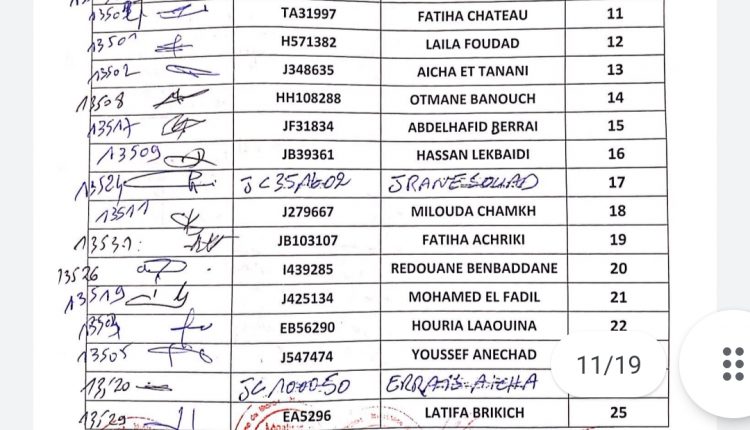 TA31997 FATIHA CHATEAU 11
13501 H571382 LAILA FOUDAD 12
13502 J348635 AICHA ET TANANI 13
13508 HH108288 OTMANE BANOUCH 14
13517 JF31834 ABDELHAFID BERRAI 15
13509 JB39361 HASSAN LEKBAIDI 16
13524 JC351602 JRANE SOUAD 17
13511 J279667 MILOUDA CHAMKH 18
JB103107 FATIHA ACHRIKI 19
13526 I439285 REDOUANE BENBADDANE 20
13519 J425134 MOHAMED EL FADIL 21
EB56290 HOURIA LAAOUINA 22
13505 J547474 YOUSSEF ANECHAD
11/19
13520 JC100050 ERRAIS AICHA
13529 EA5296 LATIFA BRIKICH 25